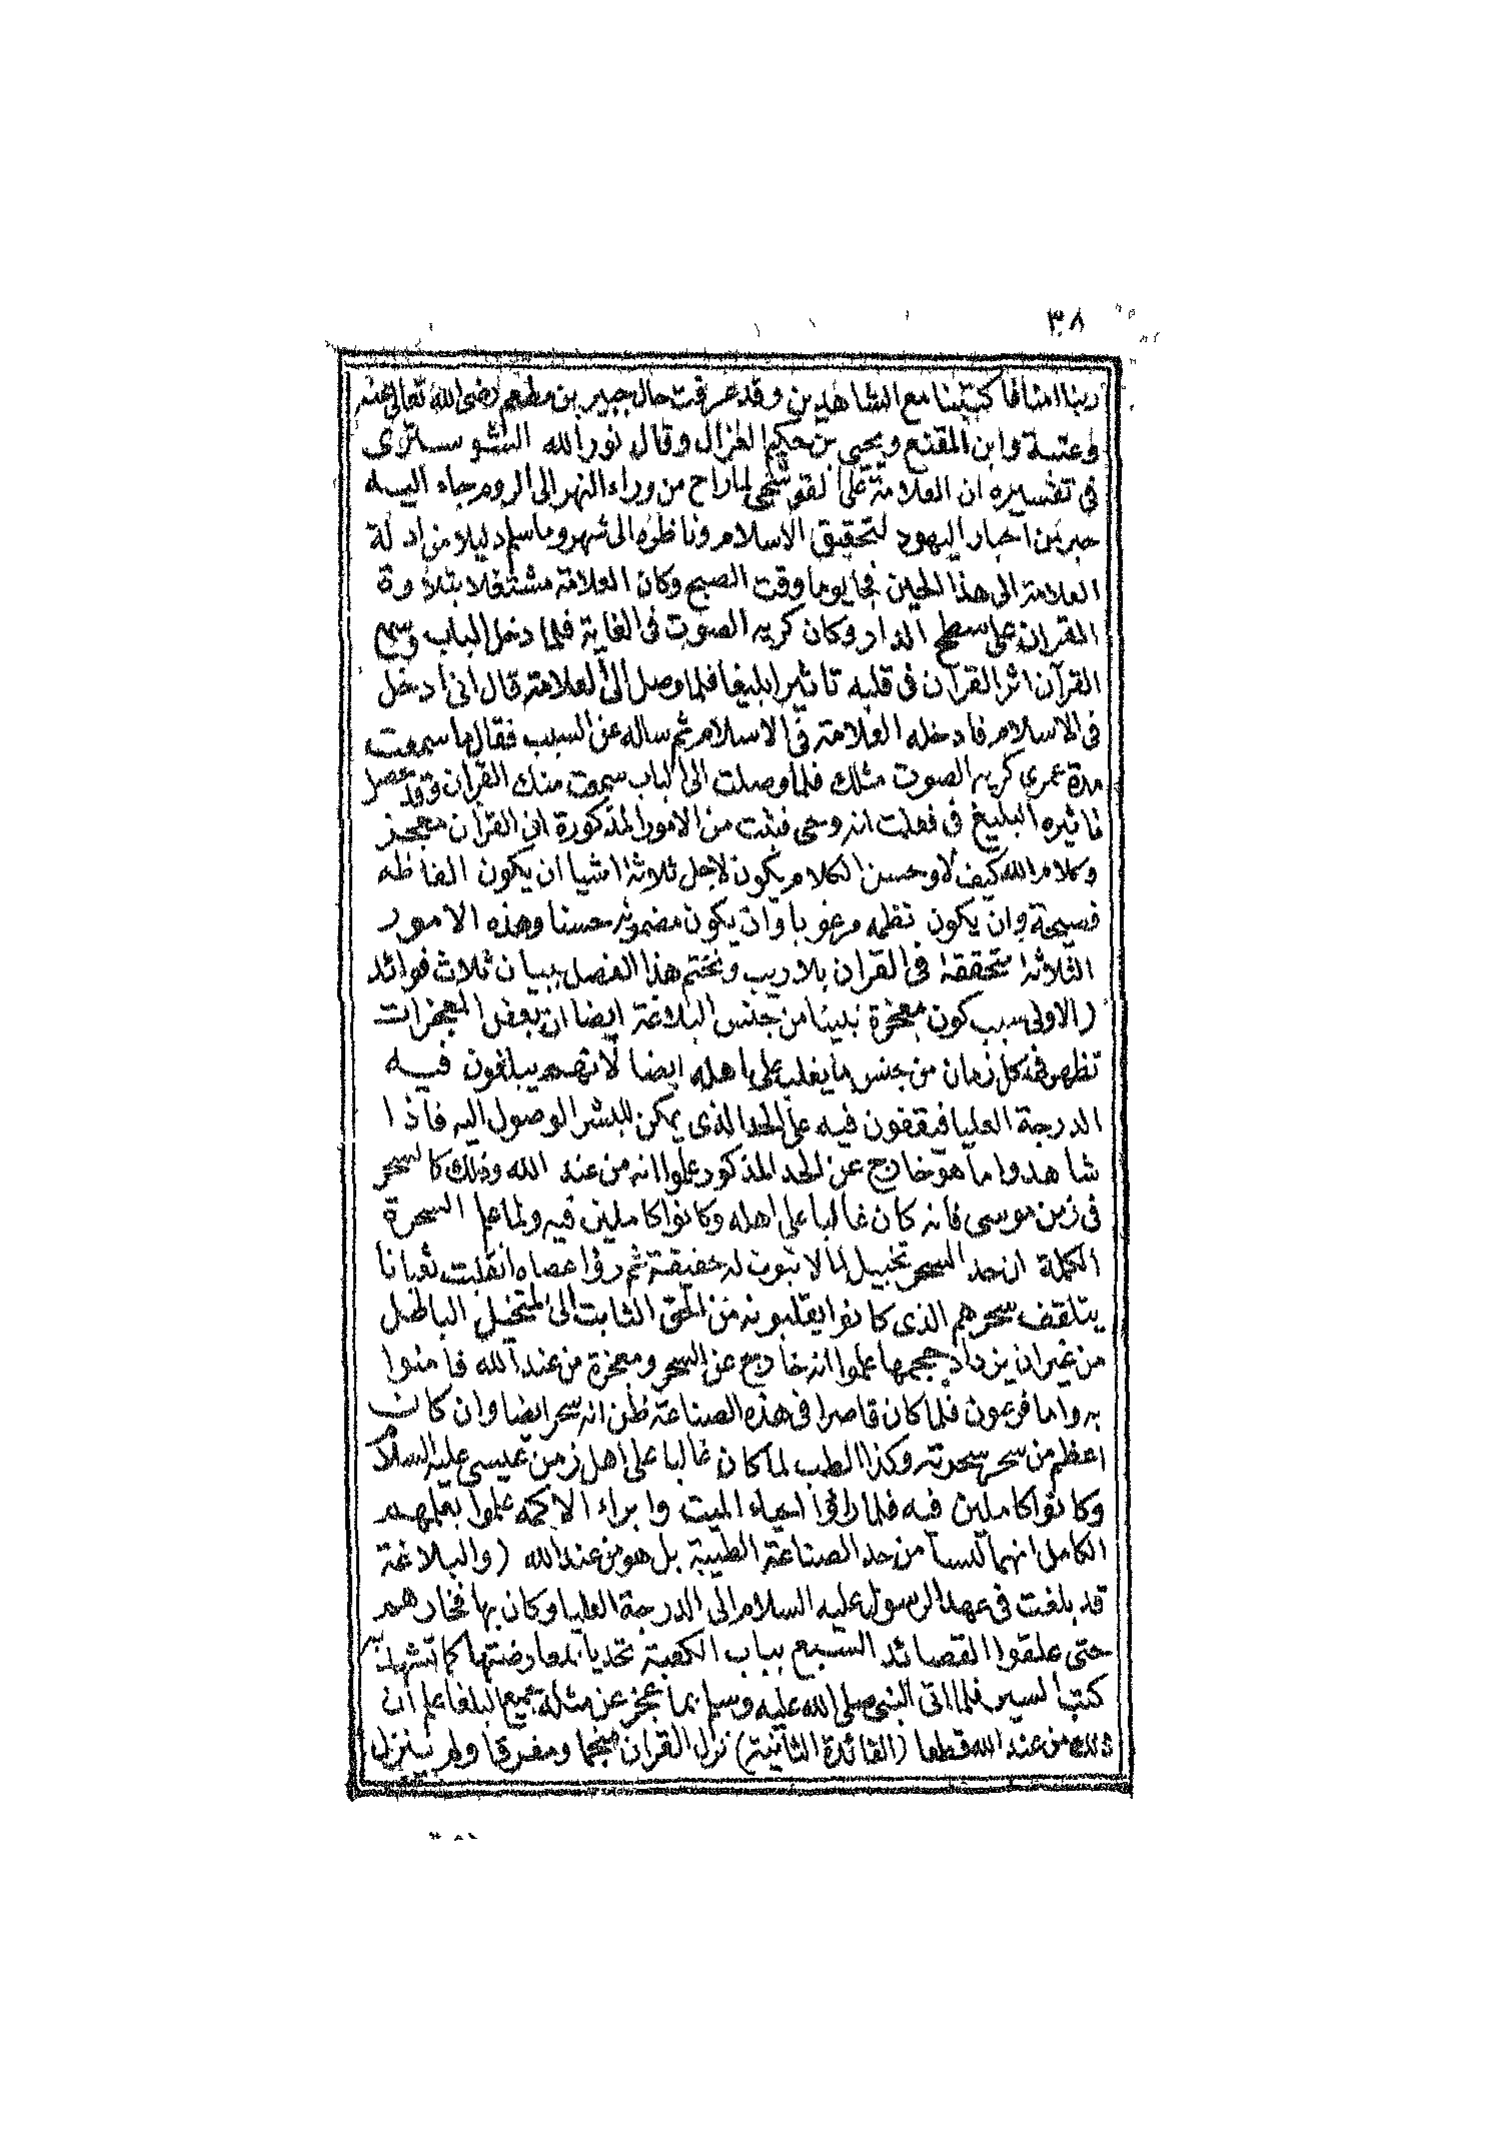 ٣٨
ربنا امنا فاكتبنا مع الشاهدين وقد عرفت حال جبير بن مطعم رضى الله تعالى عنه
وعتبة وابن المقنع ويحيى بن حكيم الغزال وقال نور الله الشوسترى
فى تفسيره ان العلامة على القوشجى لما راح من وراء النهر الى الروم جاء اليه
حبر من احبار اليهود لتحقيق الاسلام وناظره الى شهر وما سلم دليلا من ادلة
العلامة الى هذا الحين فجا يوما وقت الصبح وكان العلامة مشتغلا بتلاوة
القران على سطح الدار وكان كريه الصوت فى الغاية فلما دخل الباب وسمع
القرآن اثر القرآن فى قلبه تاثيرا بليغا فلما وصل الى العلامة قال انى ادخل
فى الاسلام فادخله العلامة فى الاسلام ثم ساله عن السبب فقال ما سمعت
مدة عمرى كريه الصوت مثلك فلما وصلت الى الباب سمعت منك القران وقد حصل
تاثيره البليغ فى فعلمت انه وحى فثبت من الامور المذكورة ان القرآن معجز
وكلام الله كيف لا وحسن الكلام يكون لاجل ثلاثة اشيا ان يكون الفاظه
فصيحة وان يكون نظمه مرغوبا وان يكون مضمونه حسنا وهذه الامور
الثلاثة متحققة فى القران بلا ريب ونختم هذا الفصل ببيان ثلاث فوائد
(الاولى سبب كون معجزة نبينا من جنس البلاغة ايضا ان بعض المعجزات
تظهر فى كل زمان من جنس ما يغلب على اهله ايضا لانهم يبلغون فيه
الدرجة العليا فيقفون فيه على الحد الذى يمكن للبشر الوصول اليه فاذا
شاهدوا ما هو خارج عن الحد المذكور علموا انه من عند الله وذلك كالسحر
فى زمن موسى فانه كان غالبا على اهله وكانوا كاملين فيه ولما علم السحرة
الكملة ان حد السحر تخييل لما لا ثبوت له حقيقة ثم رؤا عصاه انقلبت ثعبانا
يتلقف سحرهم الذى كانوا يقلبونه من الحق الثابت الى المتخيل الباطل
من غير ان يزداد حجمها علموا انه خارج عن السحر ومعجزة من عند الله فامنوا
به واما فرعون فلما كان قاصرا فى هذه الصناعة ظن انه سحر ايضا وان كان
اعظم من سحر سحرته وكذا الطب لما كان غالبا على اهل زمن عيسى عليه السلام
وكانوا كاملين فيه فلما راوا احياء الميت وابراء الاكمه علموا بعلمهم
الكامل انهما ليسا من حد الصناعة الطبية بل هو من عند الله (والبلاغة
قد بلغت فى عهد الرسول عليه السلام الى الدرجة العليا وكان بها فخارهم
حتى علقوا القصائد السبع بباب الكعبة تحديا بمعارضتها كما تشهد به
كتب السير فلما اتى النبى صلى الله عليه وسلم بما عجز عن مثله جميع البلغا علم ان
ذلك من عند الله قطعا (الفائدة الثانية) نزل القران منجما ومفرقا ولم ينزل